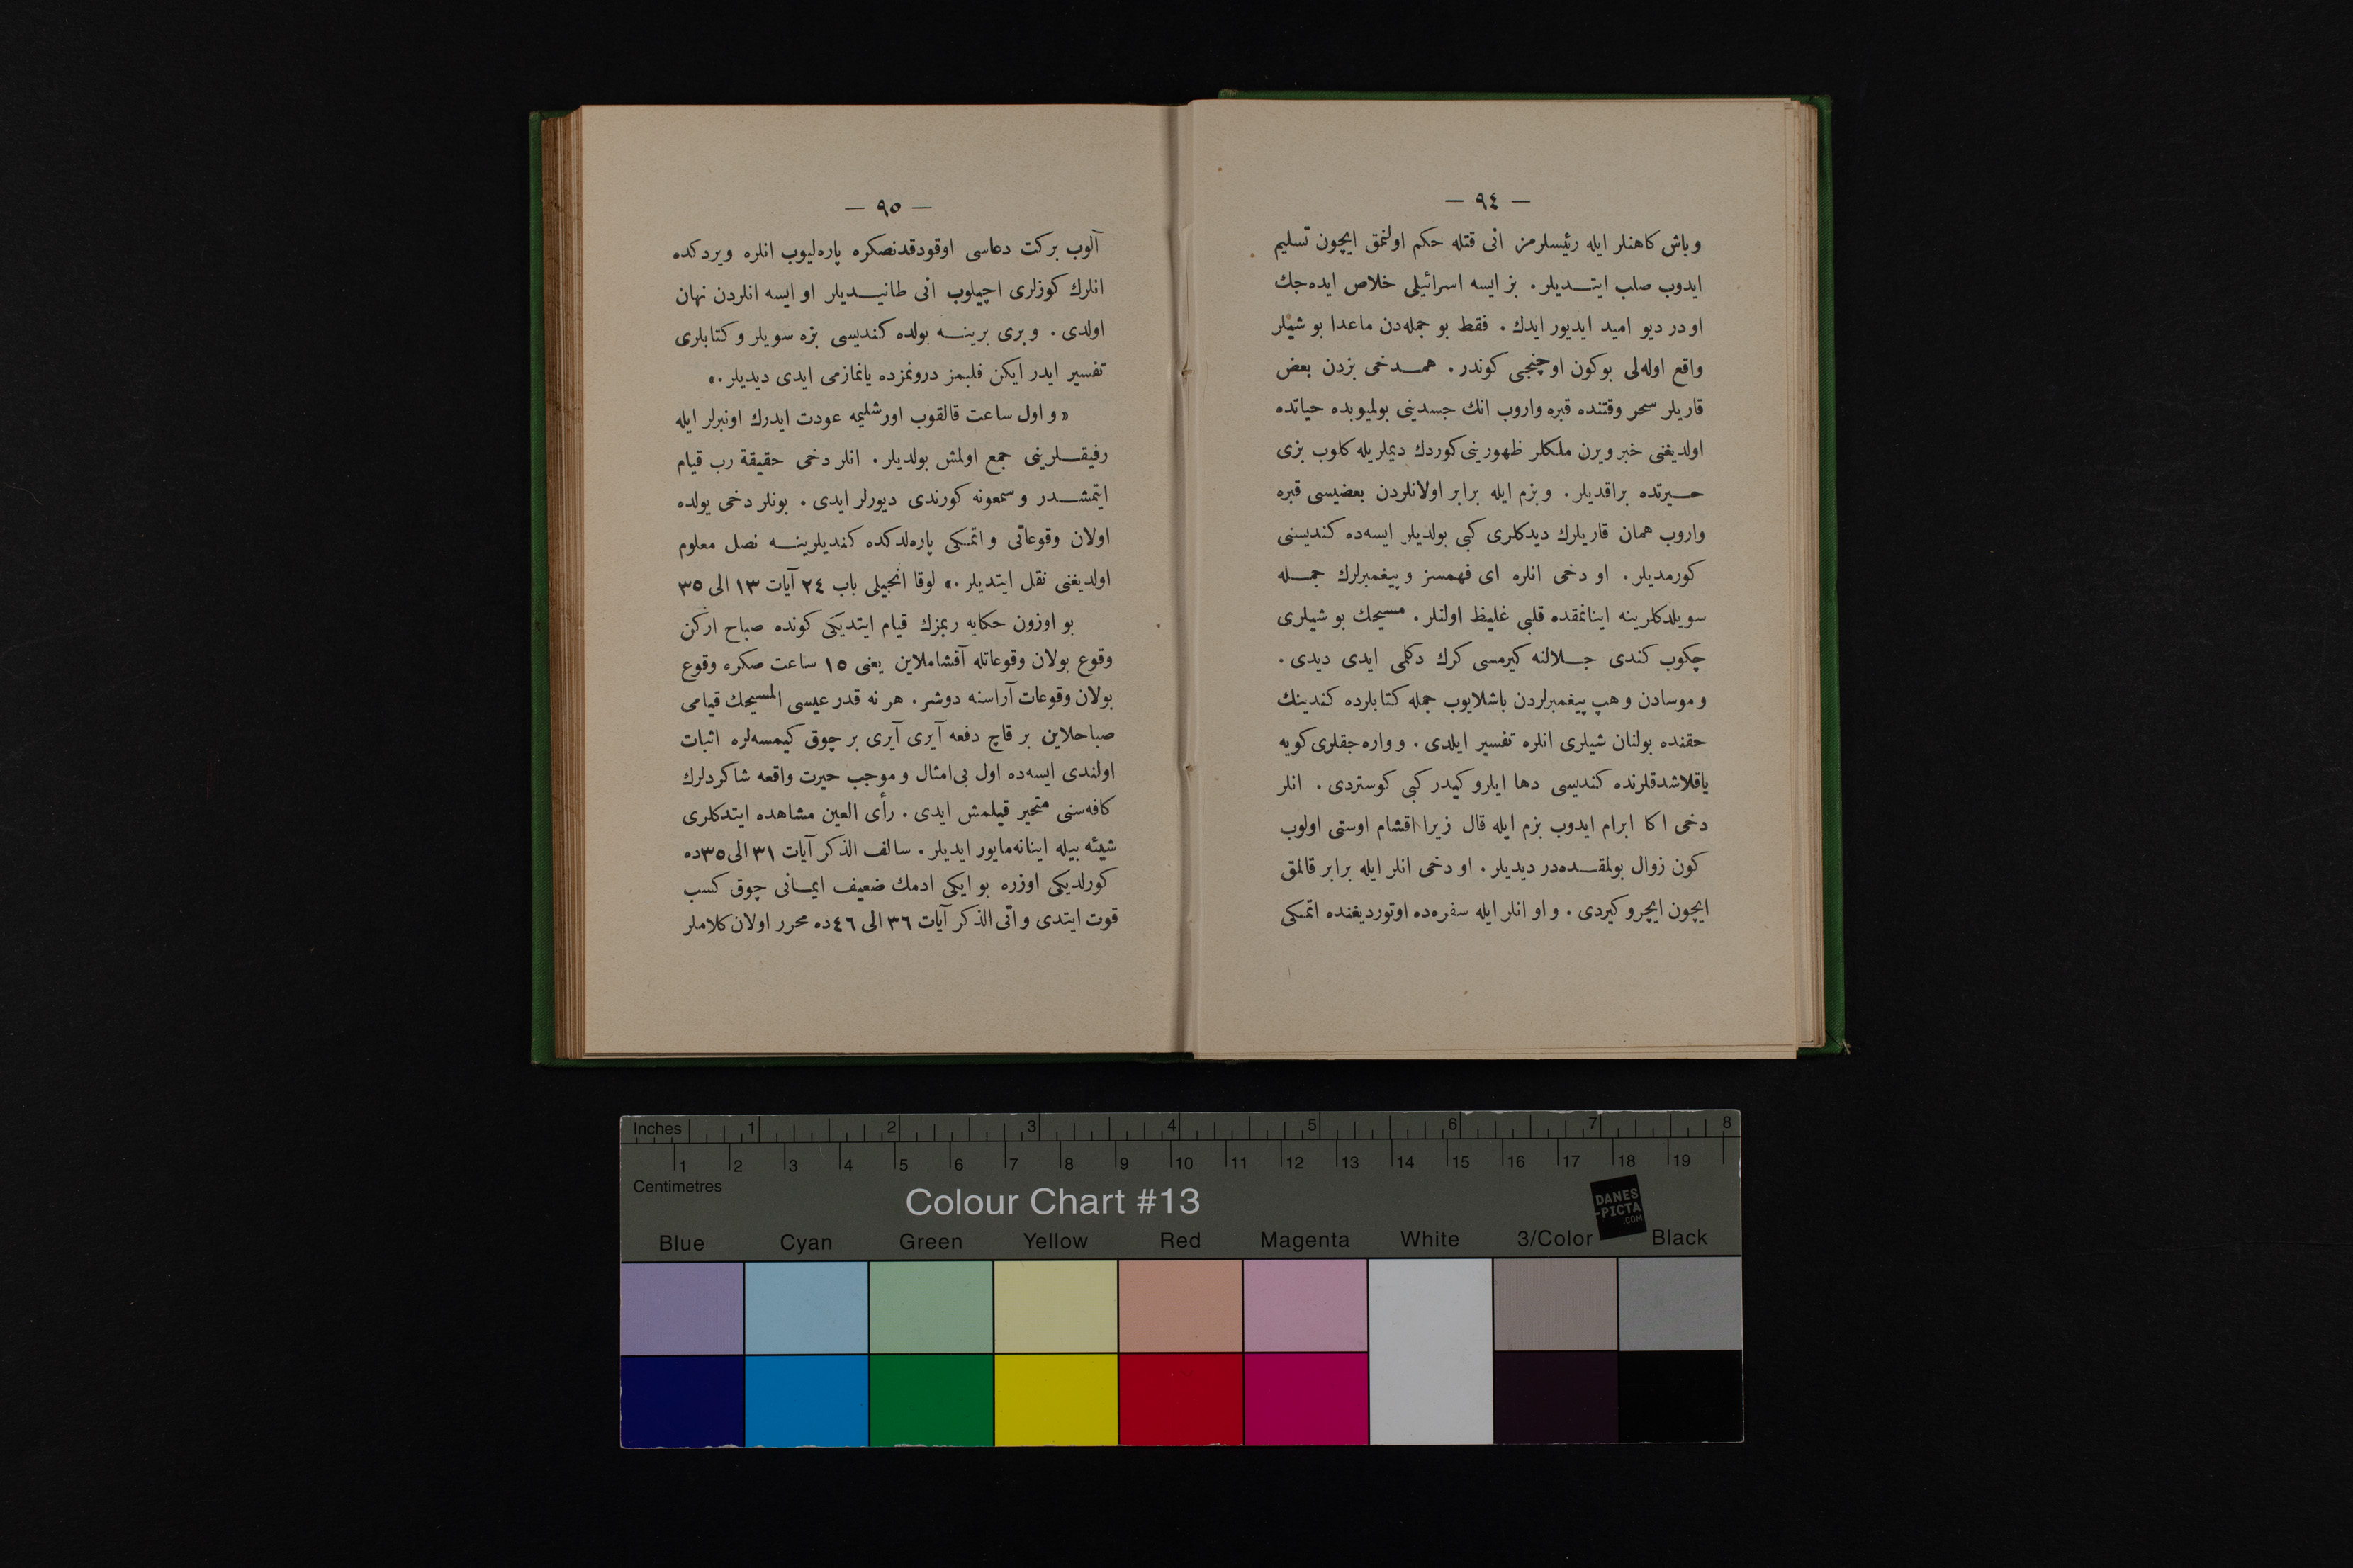 — ٩٤ —
وباش كاهنلر ايله رئيسلرمز انى قتله حكم اولنمق ايچون تسليم
ايدوب صلب ايتـــديلر . بز ايسه اسرائيلى خلاص ايده‌جك
او در ديو اميد ايديور ايدك . فقط بو جمله‌دن ماعدا بو شيلر
واقع اوله‌لى بوكون اوچنجى كوندر . همـــدخى بزدن بعض
قاريلر سحر وقتنده قبره واروب انك جسدينى بولميوبده حياتده
اولديغنى خبر ويرن ملكلر ظهورينى كوردك ديملريله كلوب بزى
حـــيرتده براقديلر . وبزم ايله برابر اولانلردن بعضيسى قبره
واروب همان قاريلرك ديدكلرى كبى بولديلر ايسه‌ده كنديسنى
كورمديلر . او دخى انلره اى فهمسز و پيغمبرلرك جمـــله
سويلدكلرينه اينانمقده قلبى غليظ اولنلر . مسيحك بو شيلرى
چكوب كندى جـــلالنه كيرمسى كرك دكلمى ايدى ديدى .
و موسادن و هپ پيغمبرلردن باشلايوب جمله كتابلرده كندينك
حقنده بولنان شيلرى انلره تفسير ايلدى . و واره‌جقلرى كويه
ياقلاشدقلرنده كنديسى دها ايلرو كيدر كبى كوستردى . انلر
دخى اكا ابرام ايدوب بزم ايله قال زيرا اقشام اوستى اولوب
كون زوال بولمقـــده‌در ديديلر . او دخى انلر ايله برابر قالمق
ايچون ايچرو كيردى . و او انلر ايله سفره‌ده اوتورديغنده اتمكى
— ٩٥ —
آلوب بركت دعاسى اوقودقدنصكره پاره‌ليوب انلره ويردكده
انلرك كوزلرى اچيلوب انى طانيـــديلر او ايسه انلردن نهان
اولدى . و برى برينـــه يولده كنديسى بزه سويلر و كتابلرى
تفسير ايدر ايكن قلبمز درونمزده يانمازمى ايدى ديديلر .»
« و اول ساعت قالقوب اورشليمه عودت ايدرك اونبرلر ايله
رفيقـــلرينى جمع اولمش بولديلر . انلر دخى حقيقة رب قيام
ايتمشـــدر و سمعونه كورندى ديورلر ايدى . بونلر دخى يولده
اولان وقوعاتى و اتمكى پاره‌لدكده كنديلرينـــه نصل معلوم
اولديغنى نقل ايتديلر .» لوقا انجيلى باب ٢٤ آيات ١٣ الى ٣٥
بو اوزون حكايه ربمزك قيام ايتديكى كونده صباح اركن
وقوع بولان وقوعاتله آقشاملاين يعنى ١٥ ساعت صكره وقوع
بولان وقوعات آراسنه دوشر . هر نه قدر عيسى المسيحك قيامى
صباحلاين بر قاچ دفعه آيرى آيرى بر چوق كيمسه‌لره اثبات
اولندى ايسه‌ده اول بى‌امثال و موجب حيرت واقعه شاكردلرك
كافه‌سنى متحير قيلمش ايدى . رأى العين مشاهده ايتدكلرى
شيئه بيله اينانه‌مايور ايديلر . سالف الذكر آيات ٣١ الى ٣٥ده
كورلديكى اوزره بو ايكى ادمك ضعيف ايمـانى چوق كسب
قوت ايتدى و اتى الذكر آيات ٣٦ الى ٤٦ده محرر اولان كلاملر
Inches 1 2 3 4 5 6 7 8
1 2 3 4 5 6 7 8 9 10 11 12 13 14 15 16 17 18 19
Centimetres
Colour Chart #13
DANES
-PICTA
.COM
Blue Cyan Green Yellow Red Magenta White 3/Color Black